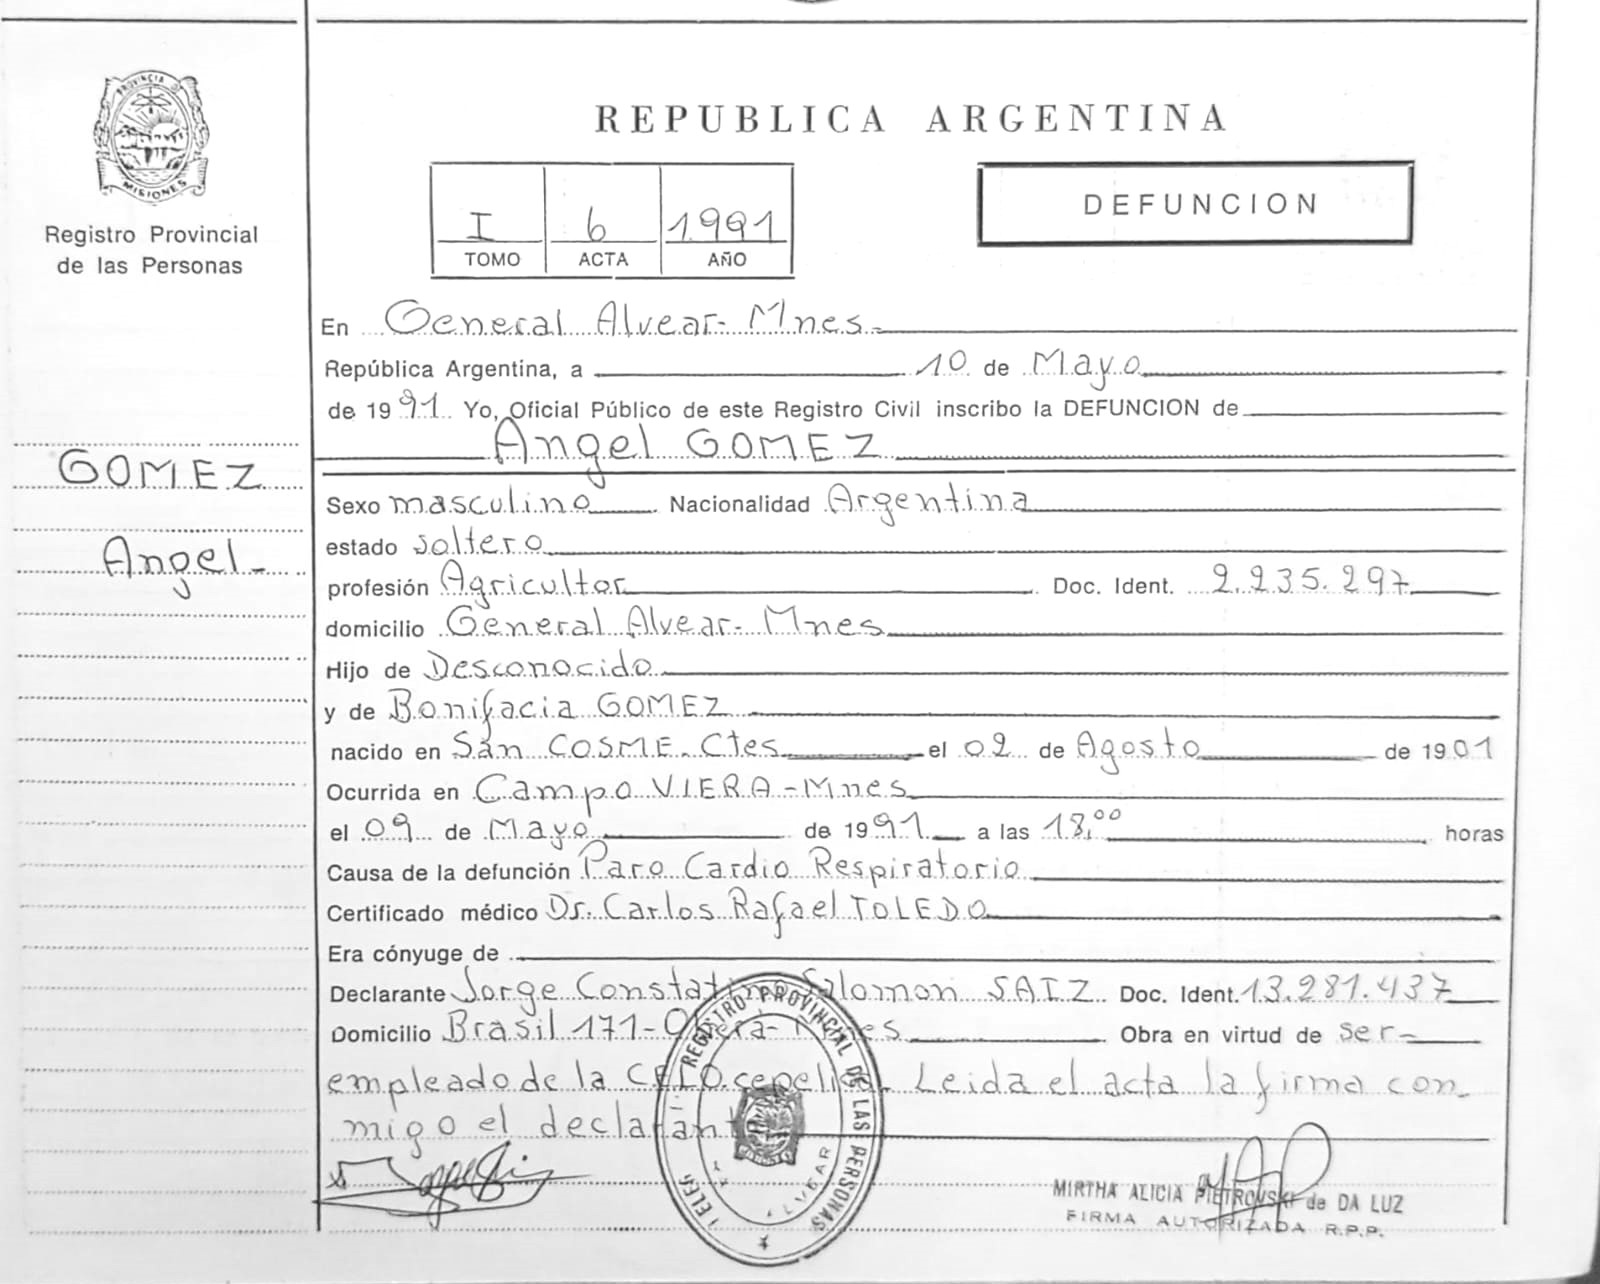 PROVINCIA D
MISIONES
Registro Provincial
de las Personas
GOMEZ
Angel-
REPUBLICA ARGENTINA
I 6 1991
TOMO ACTA AÑO
DEFUNCION
En General Alvear- Mnes-
República Argentina, a 10 de Mayo
de 1991 Yo, Oficial Público de este Registro Civil inscribo la DEFUNCION de
Angel GOMEZ
Sexo masculino Nacionalidad Argentina
estado soltero
profesión Agricultor Doc. Ident. 2.235.297
domicilio General Alvear- Mnes
Hijo de Desconocido
y de Bonifacia GOMEZ
nacido en San COSME. Ctes el 02 de Agosto de 1901
Ocurrida en Campo VIERA-Mnes
el 09 de Mayo de 1991 a las 18,00 horas
Causa de la defunción Paro Cardio Respiratorio
Certificado médico Dr. Carlos Rafael TOLEDO
Era cónyuge de
Declarante Jorge Salomon SAIZ Doc. Ident. 13.281.437
Domicilio Brasil 171- Obera- Obra en virtud de ser-
empleado de la CELO. Leida el acta la firma con
migo el declarant
REGISTRO PROVINCIAL DE LAS PERSONAS
ALVEAR
MIRTHA ALICIA PIETROVSKI de DA LUZ
FIRMA AUTORIZADA R.P.P.